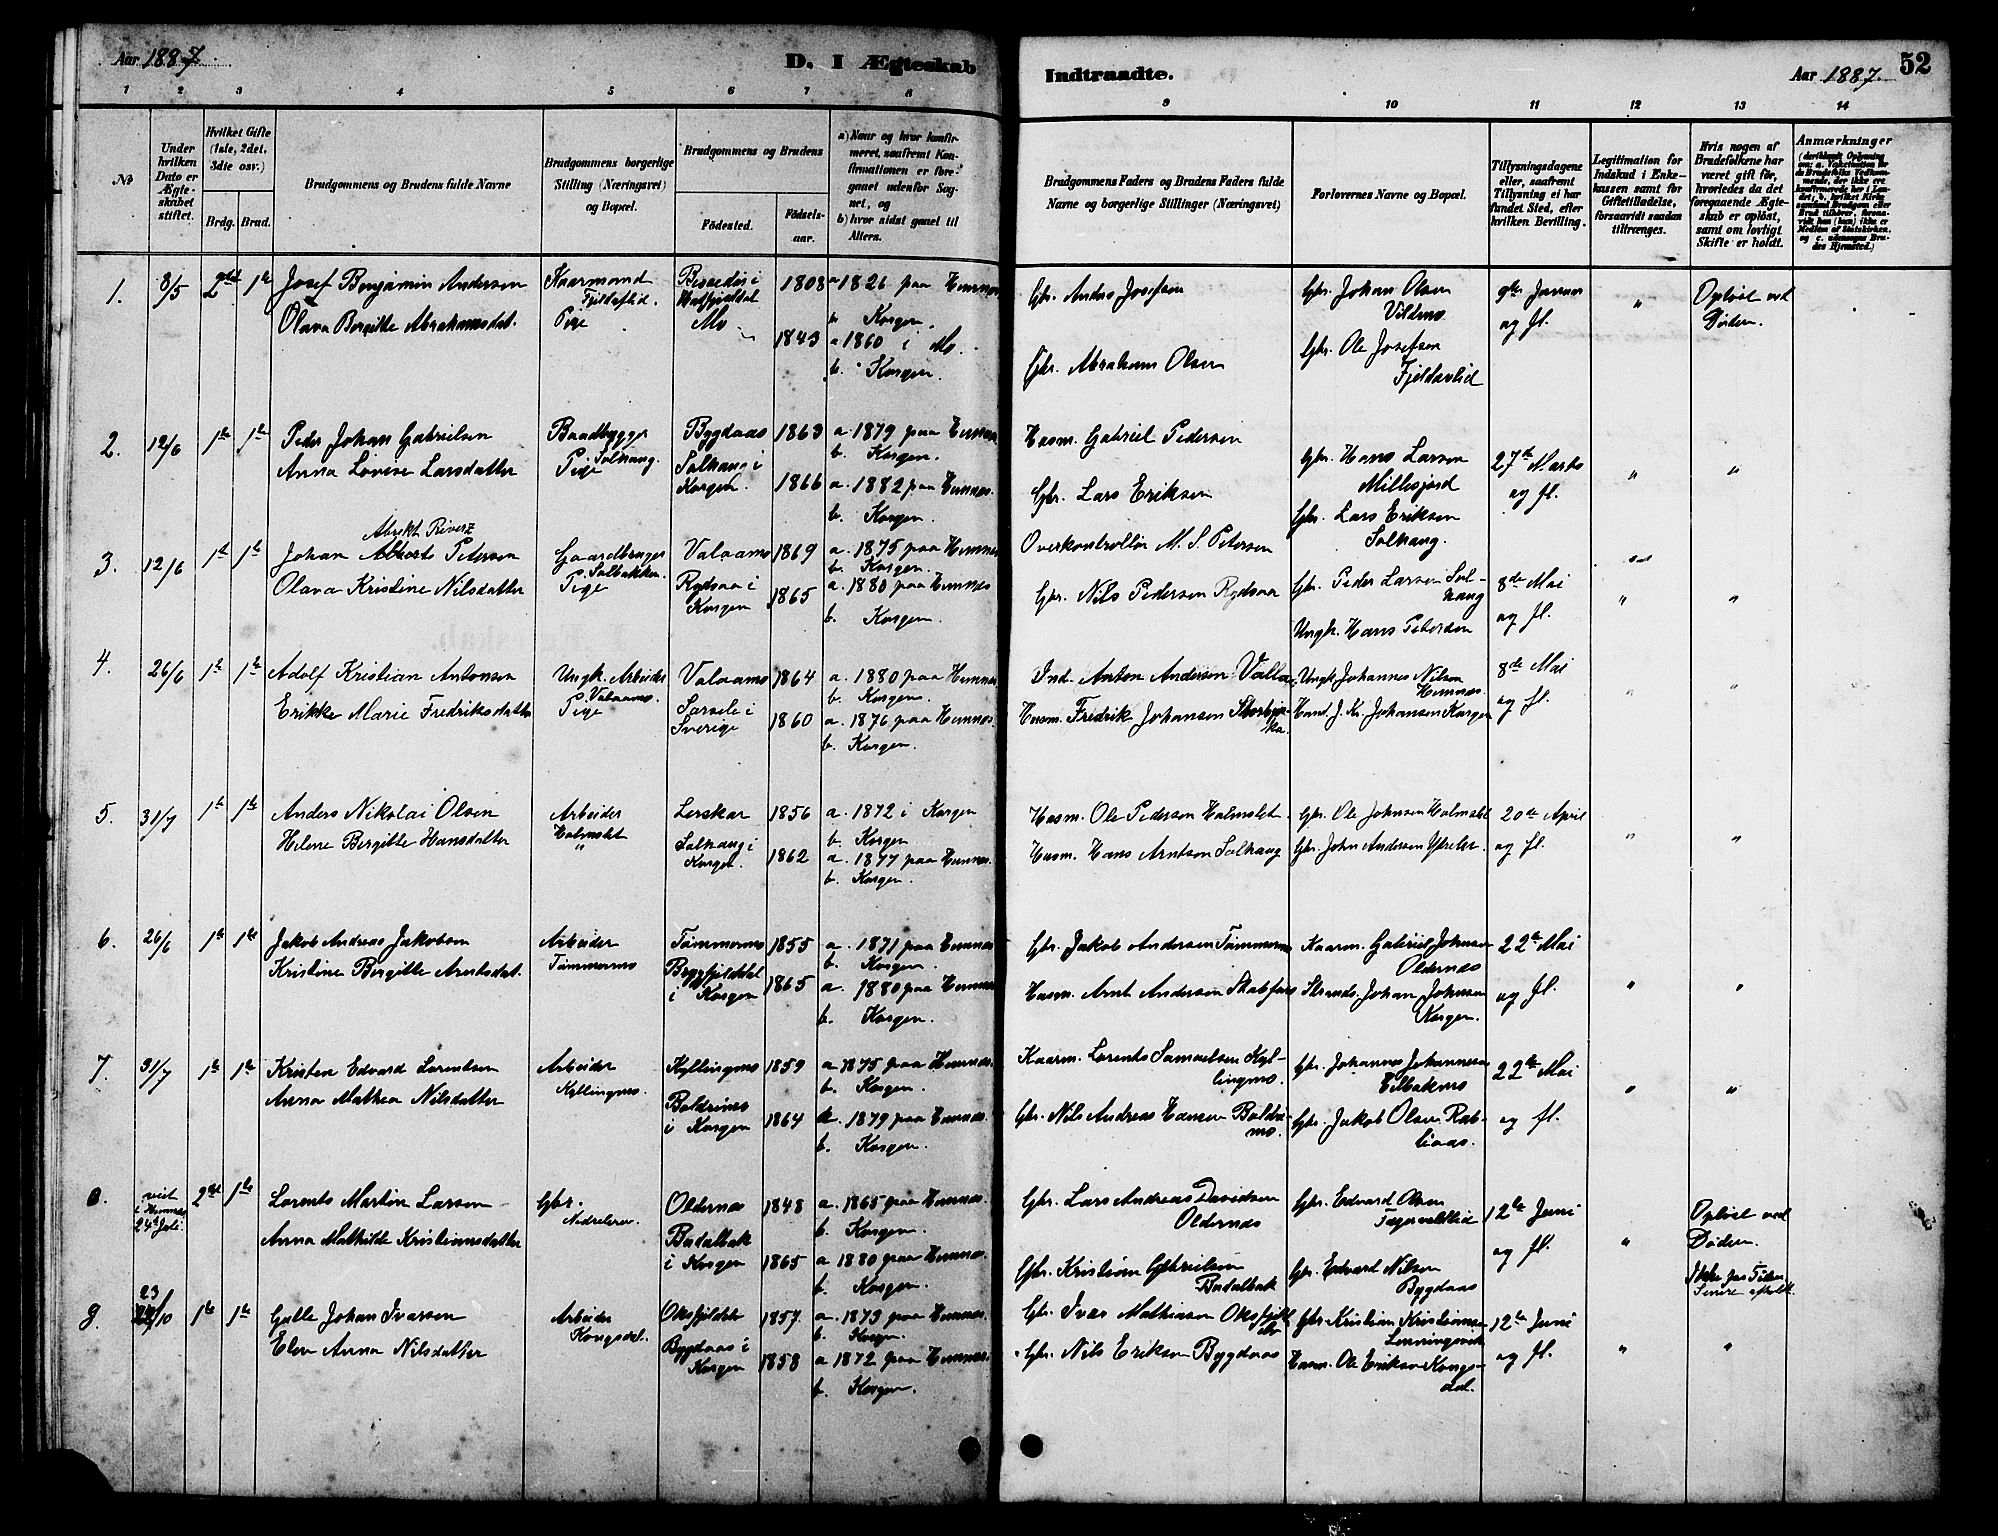 Aar 1887.
D. I Ægteskab
Indtraadte.
Aar 1887.
52
1 2 3 4 5 6 7 8
9 10 11 12 13 14
No
Under hvilken Dato er Ægteskabet stiftet.
Hvilket Gifte (1ste, 2det, 3die osv.)
Brdg. Brud.
Brudgommens og Brudens fulde Navne
Brudgommens borgerlige Stilling (Næringsvei) og Bopæl.
Brudgommens og Brudens
Fødested.
Fødselsaar.
a) Naar og hvor konfirmeret, saafremt Konfirmationen er foregaaet udenfor Sognet, og
b) hvor sidst gaaet til Alters.
Brudgommens Faders og Brudens Faders fulde Navne og borgerlige Stillinger (Næringsvei)
Forlovernes Navne og Bopæl.
Tillysningsdagene eller, saafremt Tillysning ei har fundet Sted, efter hvilken Bevilling.
Legitimation for Indskud i Enkekassen samt for Giftetilladelse, forsaavidt saadan tiltrænges.
Hvis nogen af Brudefolkene har været gift før, hvorledes da det foregaaende Ægteskab er opløst, samt om lovligt Skifte er holdt.
Anmærkninger
1. 8/5 2det 1ste Josef Benjamin Andersen Kaarmand 1808 a 1826 paa Hemnes Gbr. Anders Josefsen Gbr. Johan Olsen Januar " Opløst ved
Fjeldavlid. b. Korgen. og fl. Døden.
Olava Bergitte Abrahamsdat. Pige Mo 1843 a 1860 i Mo.
b. Korgen. Gbr. Abraham Olsen Gbr. Ole Josefsen
Fjeldavlid
2. 12/6 1ste 1ste Peder Johan Gabrielsen Baadbygger Bygdaas 1863 a. 1879 paa Hemnes Husm. Gabriel Pedersen
Solhaug. b. Korgen. Gbr. Hans Larsen 27de Marts " "
Anna Lovise Larsdatter Pige Solhaug i Korgen. 1866 a. 1882 paa Hemnes. Gbr. Lars Eriksen Millesjord og fl.
b. Korgen. Gbr. Lars Eriksen
Solhaug.
3. 12/6 1ste 1ste Johan Petersen Gaardbruger Valaamo 1869 a. 1875 paa Hemnes Overkontrollør M. S. Petersen
Solbakken. b. Korgen.
Olava Kristine Nilsdatter Pige Rydsaa i Korgen 1865 a. 1880 paa Hemnes Gbr. Nils Pedersen Rydsaa Gbr. Peder Larsen Solhaug 8de Mai " "
b. Korgen. Ungk. Hans Petersen og fl.
4. 26/6 1ste 1ste Adolf Kristian Antonsen Ungk. Arbeider Valaamo 1864 a. 1880 paa Hemnes Ind. Anton Andersen Ungk. Johannes Nilsen 8de Mai " "
Valaamo. b. Korgen. Hemnes.
Erikke Marie Fredriksdatter Pige Sarsele i Sverige 1860 a. 1876 paa Hemnes Husm. Fredrik Johansen Hand. J. Kr. Johansen Korgen og fl.
b. Korgen.
5. 31/7 1ste 1ste Anders Nikolai Olsen Arbeider Lerskar 1856 a. 1872 i Korgen Husm. Ole Pedersen Holmslet Gbr. Ole Johnsen Holmslet 20de April
Holmslet b. Korgen
Helene Bergitte Hansdatter " Solhaug i Korgen. 1862 a. 1877 paa Hemnes. Husm. Hans Arntsen Solhaug Gbr. John Andersen og fl. " "
b. Korgen.
6. 26/6 1ste 1ste Jakob Andreas Jakobsen Arbeider Tømmermo 1855 a. 1871 paa Hemnes Gbr. Jakob Andersen Tømmermo Kaarm. Gabriel Johnsen 22de Mai
Tømmermo b. Korgen. Oldernæs
Kristine Bergitte Arntsdat. i Korgen 1865 a. 1880 paa Hemnes Husm. Arnt Andersen Johan Johnsen og fl. " "
b. Korgen. Korgen.
7. 31/7 1ste 1ste Kristen Edvard Lorentsen Arbeider Kyllingmo 1859 a. 1875 paa Hemnes. Kaarm. Lorents Samuelsen Kyllingmo. Gbr. Johannes Johannesen 22de Mai
Kyllingmo. b. Korgen.
Anna Mathea Nilsdatter i Korgen 1864 a. 1879 paa Hemnes. Gbr. Nils Andreas Hansen Gbr. Jakob Olsen og fl. " "
b. Korgen.
8. viet i Hemnes 24de Juli 2det 1ste Lorents Martin Larsen Gbr. Oldernæs 1848 a. 1865 paa Hemnes. Gbr. Lars Andreas Davidsen Gbr. Edvard Olsen 12te Juni Opløst ved
b. Korgen. Oldernæs Døden.
Anna Mathilde Kristiansdatter Badalbak i Korgen 1865 a 1880 paa Hemnes. Gbr. Kristian Gabrielsen Gbr. Edvard Nilsen og fl. "
b. Korgen. Badalbak Bygdaas
9. 23/10 1ste 1ste Johan Ivarsen Arbeider Oksfjeldet 1857 a. 1873 paa Hemnes. Gbr. Ivar Mathiasen Gbr. Kristian Kristiansen 12te Juni
Kongsdal. b. Korgen.
Elen Anna Nilsdatter Bygdaas i Korgen 1858 a 1872 paa Hemnes. Gbr. Nils Eriksen Bygdaas Husm. Ole Eriksen Kongsdal. og fl. " "
b. Korgen.